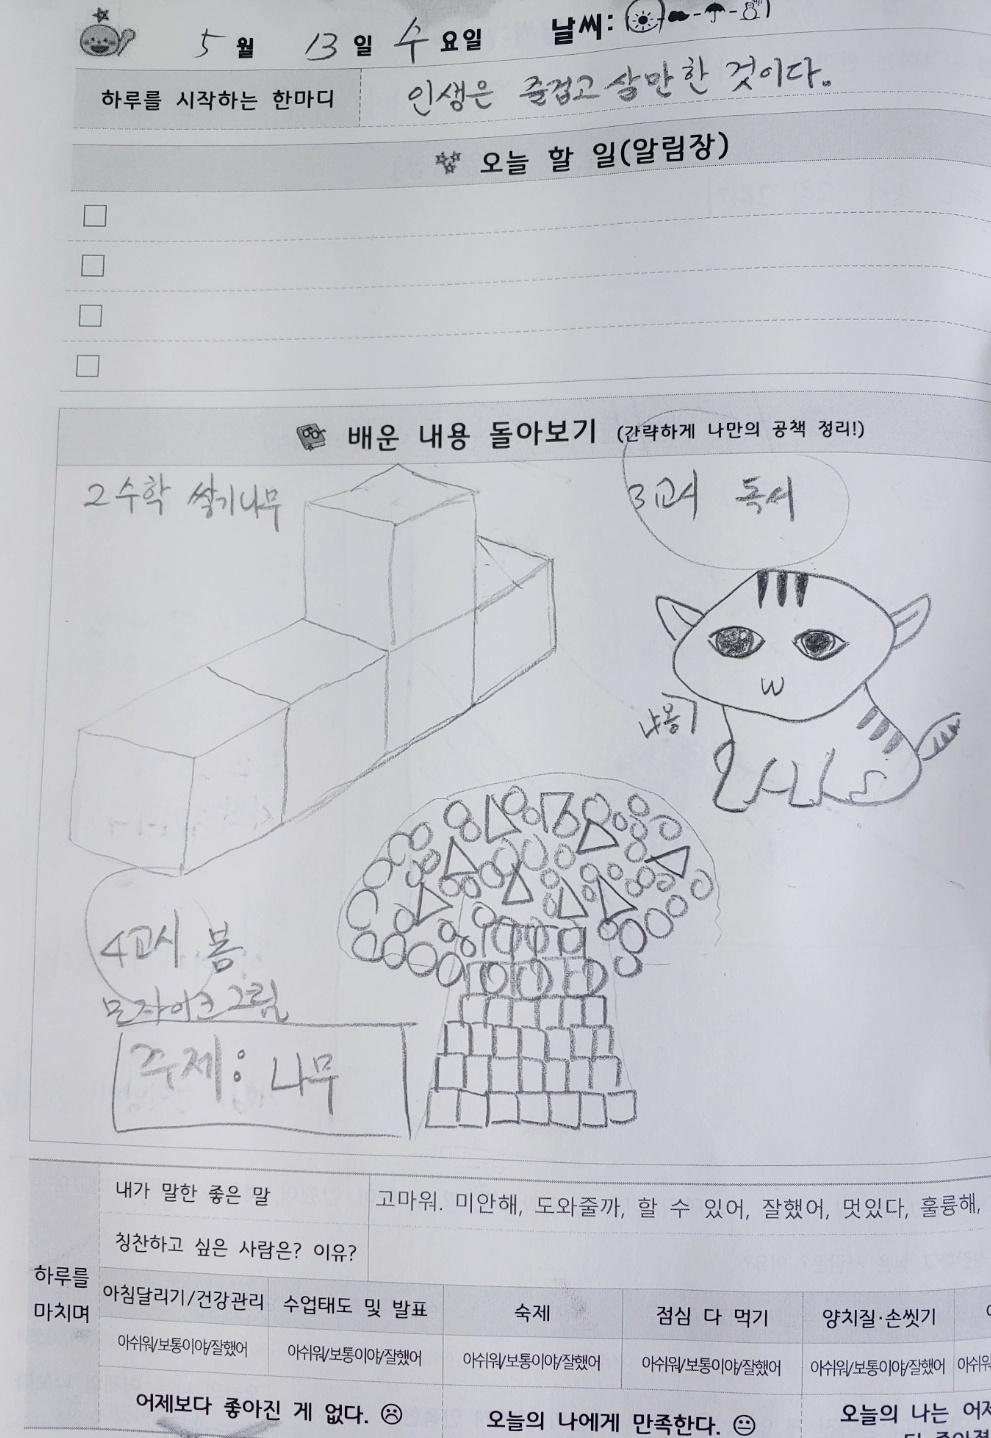 5월 13일 수요일 날씨:
하루를 시작하는 한마디 인생은 즐겁고 살만한 것이다.
오늘 할 일(알림장)
배운 내용 돌아보기 (간략하게 나만의 공책 정리!)
2 수학 쌓기나무
3교시 독서
냐옹
4교시 봄
모자이크 그림
주제: 나무
하루를 마치며
내가 말한 좋은 말 고마워. 미안해, 도와줄까, 할 수 있어, 잘했어, 멋있다, 훌륭해,
칭찬하고 싶은 사람은? 이유?
아침달리기/건강관리 수업태도 및 발표 숙제 점심 다 먹기 양치질·손씻기
아쉬워/보통이야/잘했어 아쉬워/보통이야/잘했어 아쉬워/보통이야/잘했어 아쉬워/보통이야/잘했어 아쉬워/보통이야/잘했어 아쉬워
어제보다 좋아진 게 없다. ☹ 오늘의 나에게 만족한다. 😐 오늘의 나는